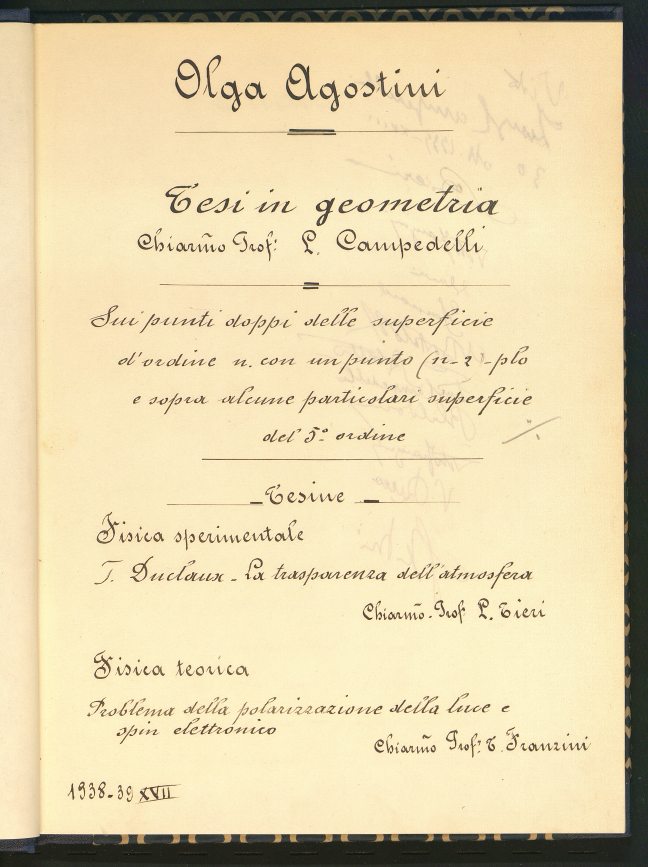 Olga Agostini
Tesi in geometria
Chiarm̃o Prof: L. Campedelli
Sui punti doppi delle superficie
d'ordine n. con un punto (n-2-plo
e sopra alcune particolari superficie
del 5° ordine
Tesine
Fisica sperimentale
J. Duclaux - La trasparenza dell'atmosfera
Chiarm̃o - Prof L. Tieri
Fisica teorica
Problema della polarizzazione della luce e
spin elettronico
Chiarm̃o Prof: T. Franzini
1938-39 XVII